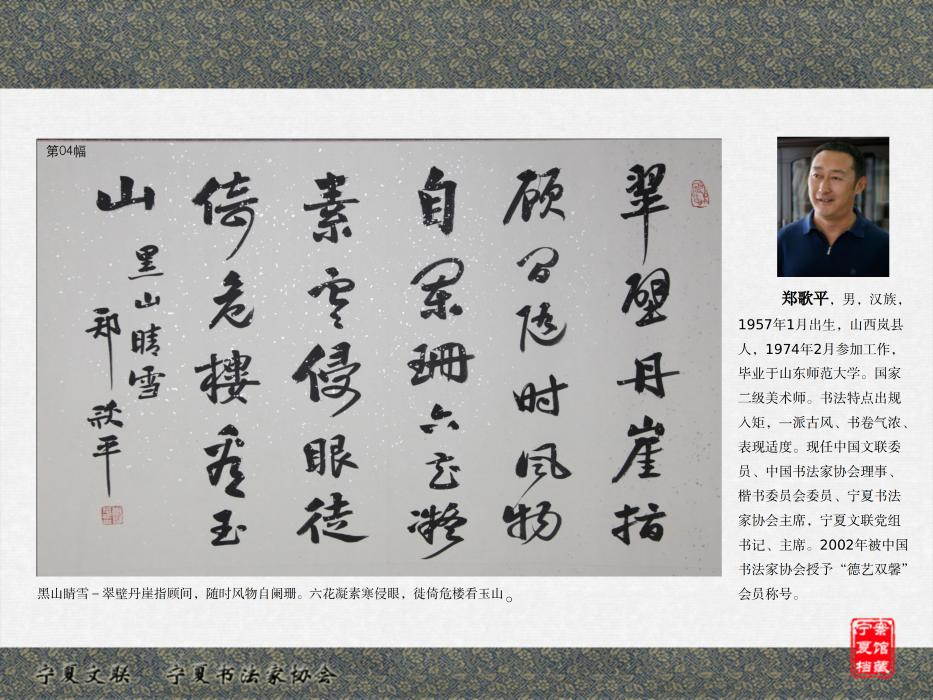 第04幅
翠壁丹崖指
顾间随时风物
自阑珊六花凝
素寒侵眼徒
倚危楼看玉
山
黑山晴雪
郑歌平
黑山睛雪－翠壁丹崖指顾间，随时风物自阑珊。六花凝素寒侵眼，徙倚危楼看玉山。
郑歌平，男，汉族，
1957年1月出生，山西岚县
人，1974年2月参加工作，
毕业于山东师范大学。国家
二级美术师。书法特点出规
入矩，一派古风、书卷气浓、
表现适度。现任中国文联委
员、中国书法家协会理事、
楷书委员会委员、宁夏书法
家协会主席，宁夏文联党组
书记、主席。2002年被中国
书法家协会授予“德艺双馨”
会员称号。
宁夏文联 宁夏书法家协会
宁夏档案馆藏